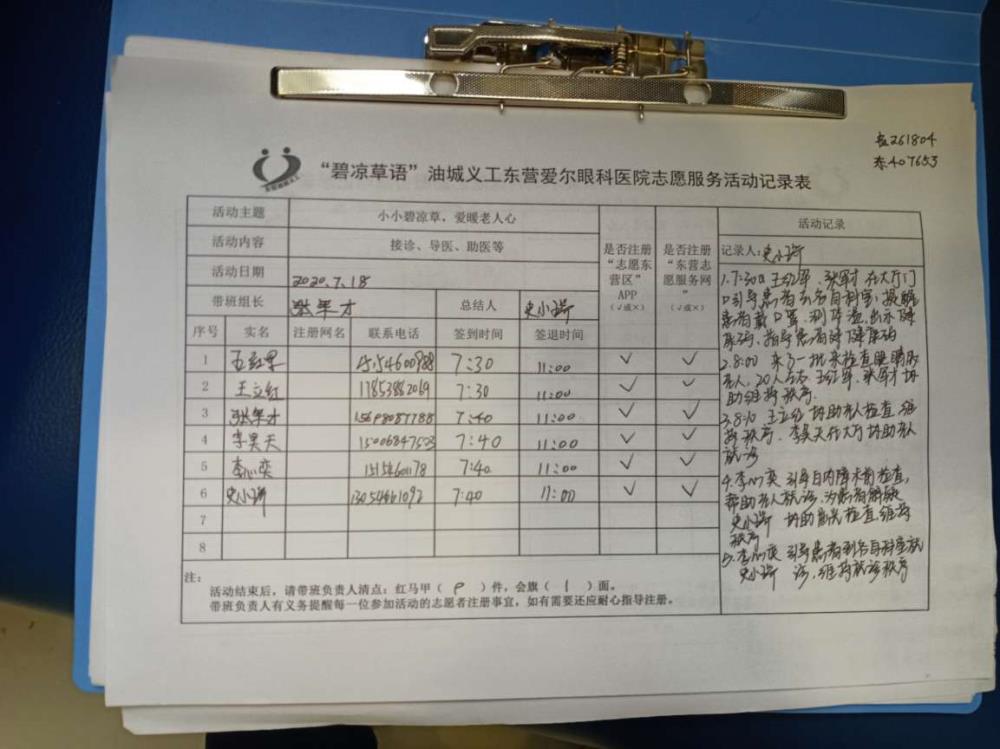 261804
东407653
“碧凉草语”油城义工东营爱尔眼科医院志愿服务活动记录表
活动主题 小小碧凉草，爱暖老人心
活动内容 接诊、导医、助医等
活动日期 2020.7.18
带班组长 张军才 总结人 史小瑞
是否注册“志愿东营区”APP（√或×）
是否注册“东营志愿服务网”（√或×）
序号 实名 注册网名 联系电话 签到时间 签退时间
1 7:30 11:00 √ √
2 王立红 17853882069 7:30 11:00 √ √
3 张军才 7:40 11:00 √ √
4 李昊天 7:40 11:00 √ √
5 李心奕 7:40 11:00 √ √
6 史小瑞 7:40 11:00 √ √
7
8
注：
活动结束后，请带班负责人清点：红马甲（ ）件，会旗（ 1 ）面。
带班负责人有义务提醒每一位参加活动的志愿者注册事宜，如有需要还应耐心指导注册。
活动记录
记录人：史小瑞
1.7:30 王红军、张军才在大厅门
口引导患者到各自科室，提醒
患者戴口罩，测体温，出示健
康码，指导患者 健康码
2.8:00 来了一批来检查眼睛的
老人，20人左右 王红军、张军才协
助维持秩序
3.8:10 王立红协助老人检查，维
持秩序，李昊天在大厅协助老人
就诊
4.李心奕 引导白内障术前检查，
帮助老人就诊，为患者解疑
史小瑞 协助 检查，维持
秩序
5.李心奕 引导患者到各自科室就
史小瑞 诊，维持就诊秩序